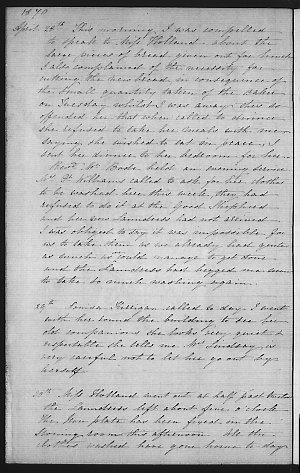 1870
April 28th This morning I was compelled
to speak to Miss Holland about the
large pieces of bread given out for lunch
I also complained of the necessity for
cutting the new bread in consequence of
the small quantity taken of the Baker
on Tuesday whilst I was away this so
offended her that when called to dinner
she refused to take her meals with me
saying she wished to eat in peace. I
sent her dinner to her bedroom for her.
Revd. Mr. held an evening service
Mrs. Williams called to ask for the clothes
to be washed here this week, they had
refused to do it at the Good Shepherd
and her own Laundress had not arrived
I was obliged to say it was impossible for
us to take them as we already had quite
as much as we could manage to get done
and the Laundress had begged me not
to take so much washing again.
29th Louisa called to day. I went
with her round the building to see her
old companions she looks very quiet &
respectable she tells me Mrs. Lindsay is
very careful not to let her go out by
herself.
30th Miss Holland went out at half past
the Laundress left about five o'clock
The plate has been fixed on the
room this afternoon All the
clothes washed have gone home to day.